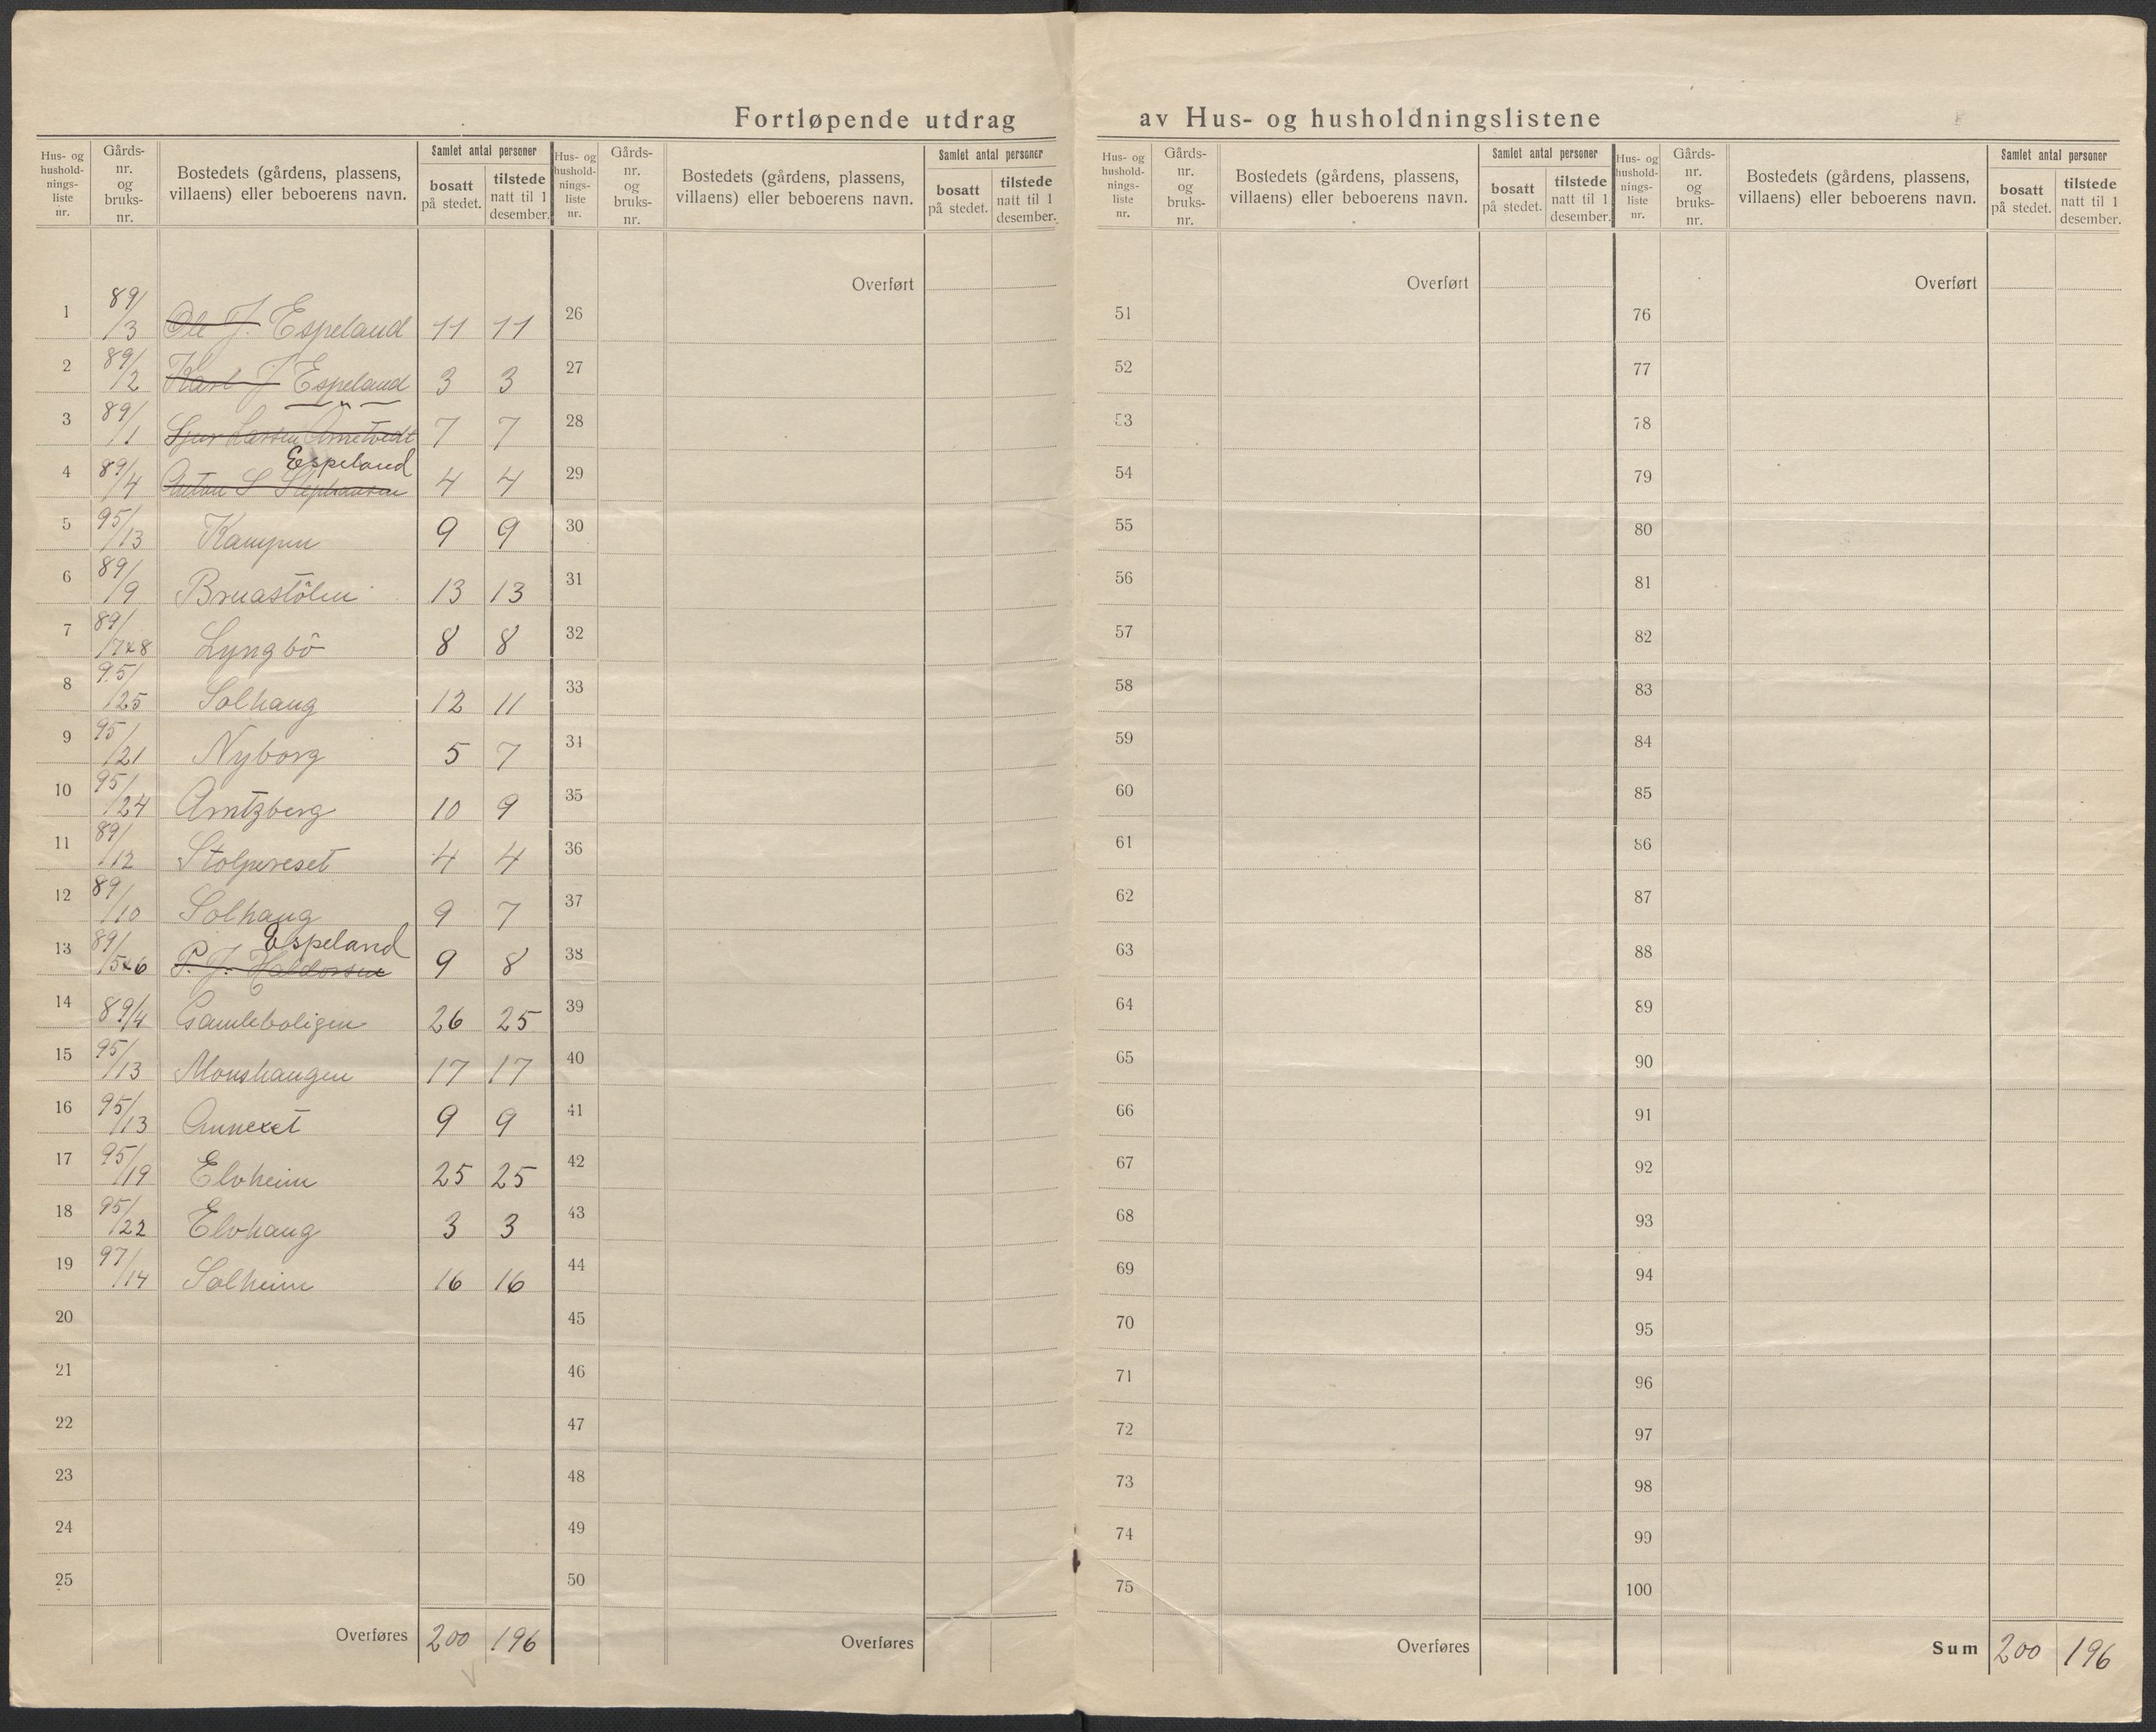 Fortløpende utdrag av Hus- og husholdningslistene
Hus- og hushold-nings-liste nr. | Gårds-nr. og bruks-nr. | Bostedets (gårdens, plassens, villaens) eller beboerens navn. | Samlet antal personer | bosatt på stedet. | tilstede natt til 1 desember.
1 89/3 Ole J. Espeland 11 11
2 89/2 Karl J Espeland 3 3
3 89/1 Sjur Larsen Arnetvedt — „ — 7 7
4 89/4 Anton S Stephansen Espeland 4 4
5 95/13 Kampen 9 9
6 89/9 Bruastölen 13 13
7 89/7 & 8 Lyngbö 8 8
8 95/25 Solhaug 12 11
9 95/21 Nyborg 5 7
10 95/24 Arntzberg 10 9
11 89/12 Stolpereset 4 4
12 89/10 Solhaug 9 7
13 89/5 & 6 P. J. Haldorsen Espeland 9 8
14 89/4 Gamleboligen 26 25
15 95/13 Monshaugen 17 17
16 95/13 Annexet 9 9
17 95/19 Elvheim 25 25
18 95/22 Elvhaug 3 3
19 97/14 Solheim 16 16
20
21
22
23
24
25
Overføres 200 196
Hus- og hushold-nings-liste nr. | Gårds-nr. og bruks-nr. | Bostedets (gårdens, plassens, villaens) eller beboerens navn. | Samlet antal personer | bosatt på stedet. | tilstede natt til 1 desember.
Overført
26
27
28
29
30
31
32
33
34
35
36
37
38
39
40
41
42
43
44
45
46
47
48
49
50
Overføres
Hus- og hushold-nings-liste nr. | Gårds-nr. og bruks-nr. | Bostedets (gårdens, plassens, villaens) eller beboerens navn. | Samlet antal personer | bosatt på stedet. | tilstede natt til 1 desember.
Overført
51
52
53
54
55
56
57
58
59
60
61
62
63
64
65
66
67
68
69
70
71
72
73
74
75
Overføres
Hus- og hushold-nings-liste nr. | Gårds-nr. og bruks-nr. | Bostedets (gårdens, plassens, villaens) eller beboerens navn. | Samlet antal personer | bosatt på stedet. | tilstede natt til 1 desember.
Overført
76
77
78
79
80
81
82
83
84
85
86
87
88
89
90
91
92
93
94
95
96
97
98
99
100
Sum 200 196